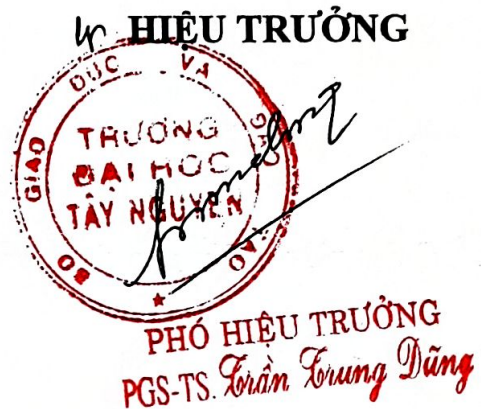 HIỆU TRƯỞNG
BỘ GIÁO DỤC VÀ ĐÀO TẠO
TRƯỜNG
ĐẠI HỌC
TÂY NGUYÊN
PHÓ HIỆU TRƯỞNG
PGS-TS. Trần Trung Dũng